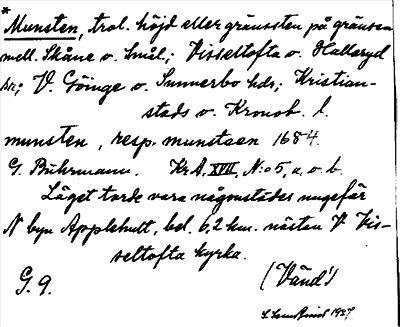 *
Munsten, trol. höjd eller gränssten på gränsen
mell. Skåne o. Smål.; Visseltofta o. Hallaryd
snr; V. Göinge o. Sunnerbo hds; Kristian-
stads o. Kronob. l.
munsten, resp. munsteen 1684.
G. Buhrmann. Kr.A. XVII, N:o 5, a. o. b.
Läget torde vara någonstädes ungefär
N byn Applehult, bel. 6,2 km. nästan V Vis-
seltofta kyrka.
G. 9. (Vänd!)
1927